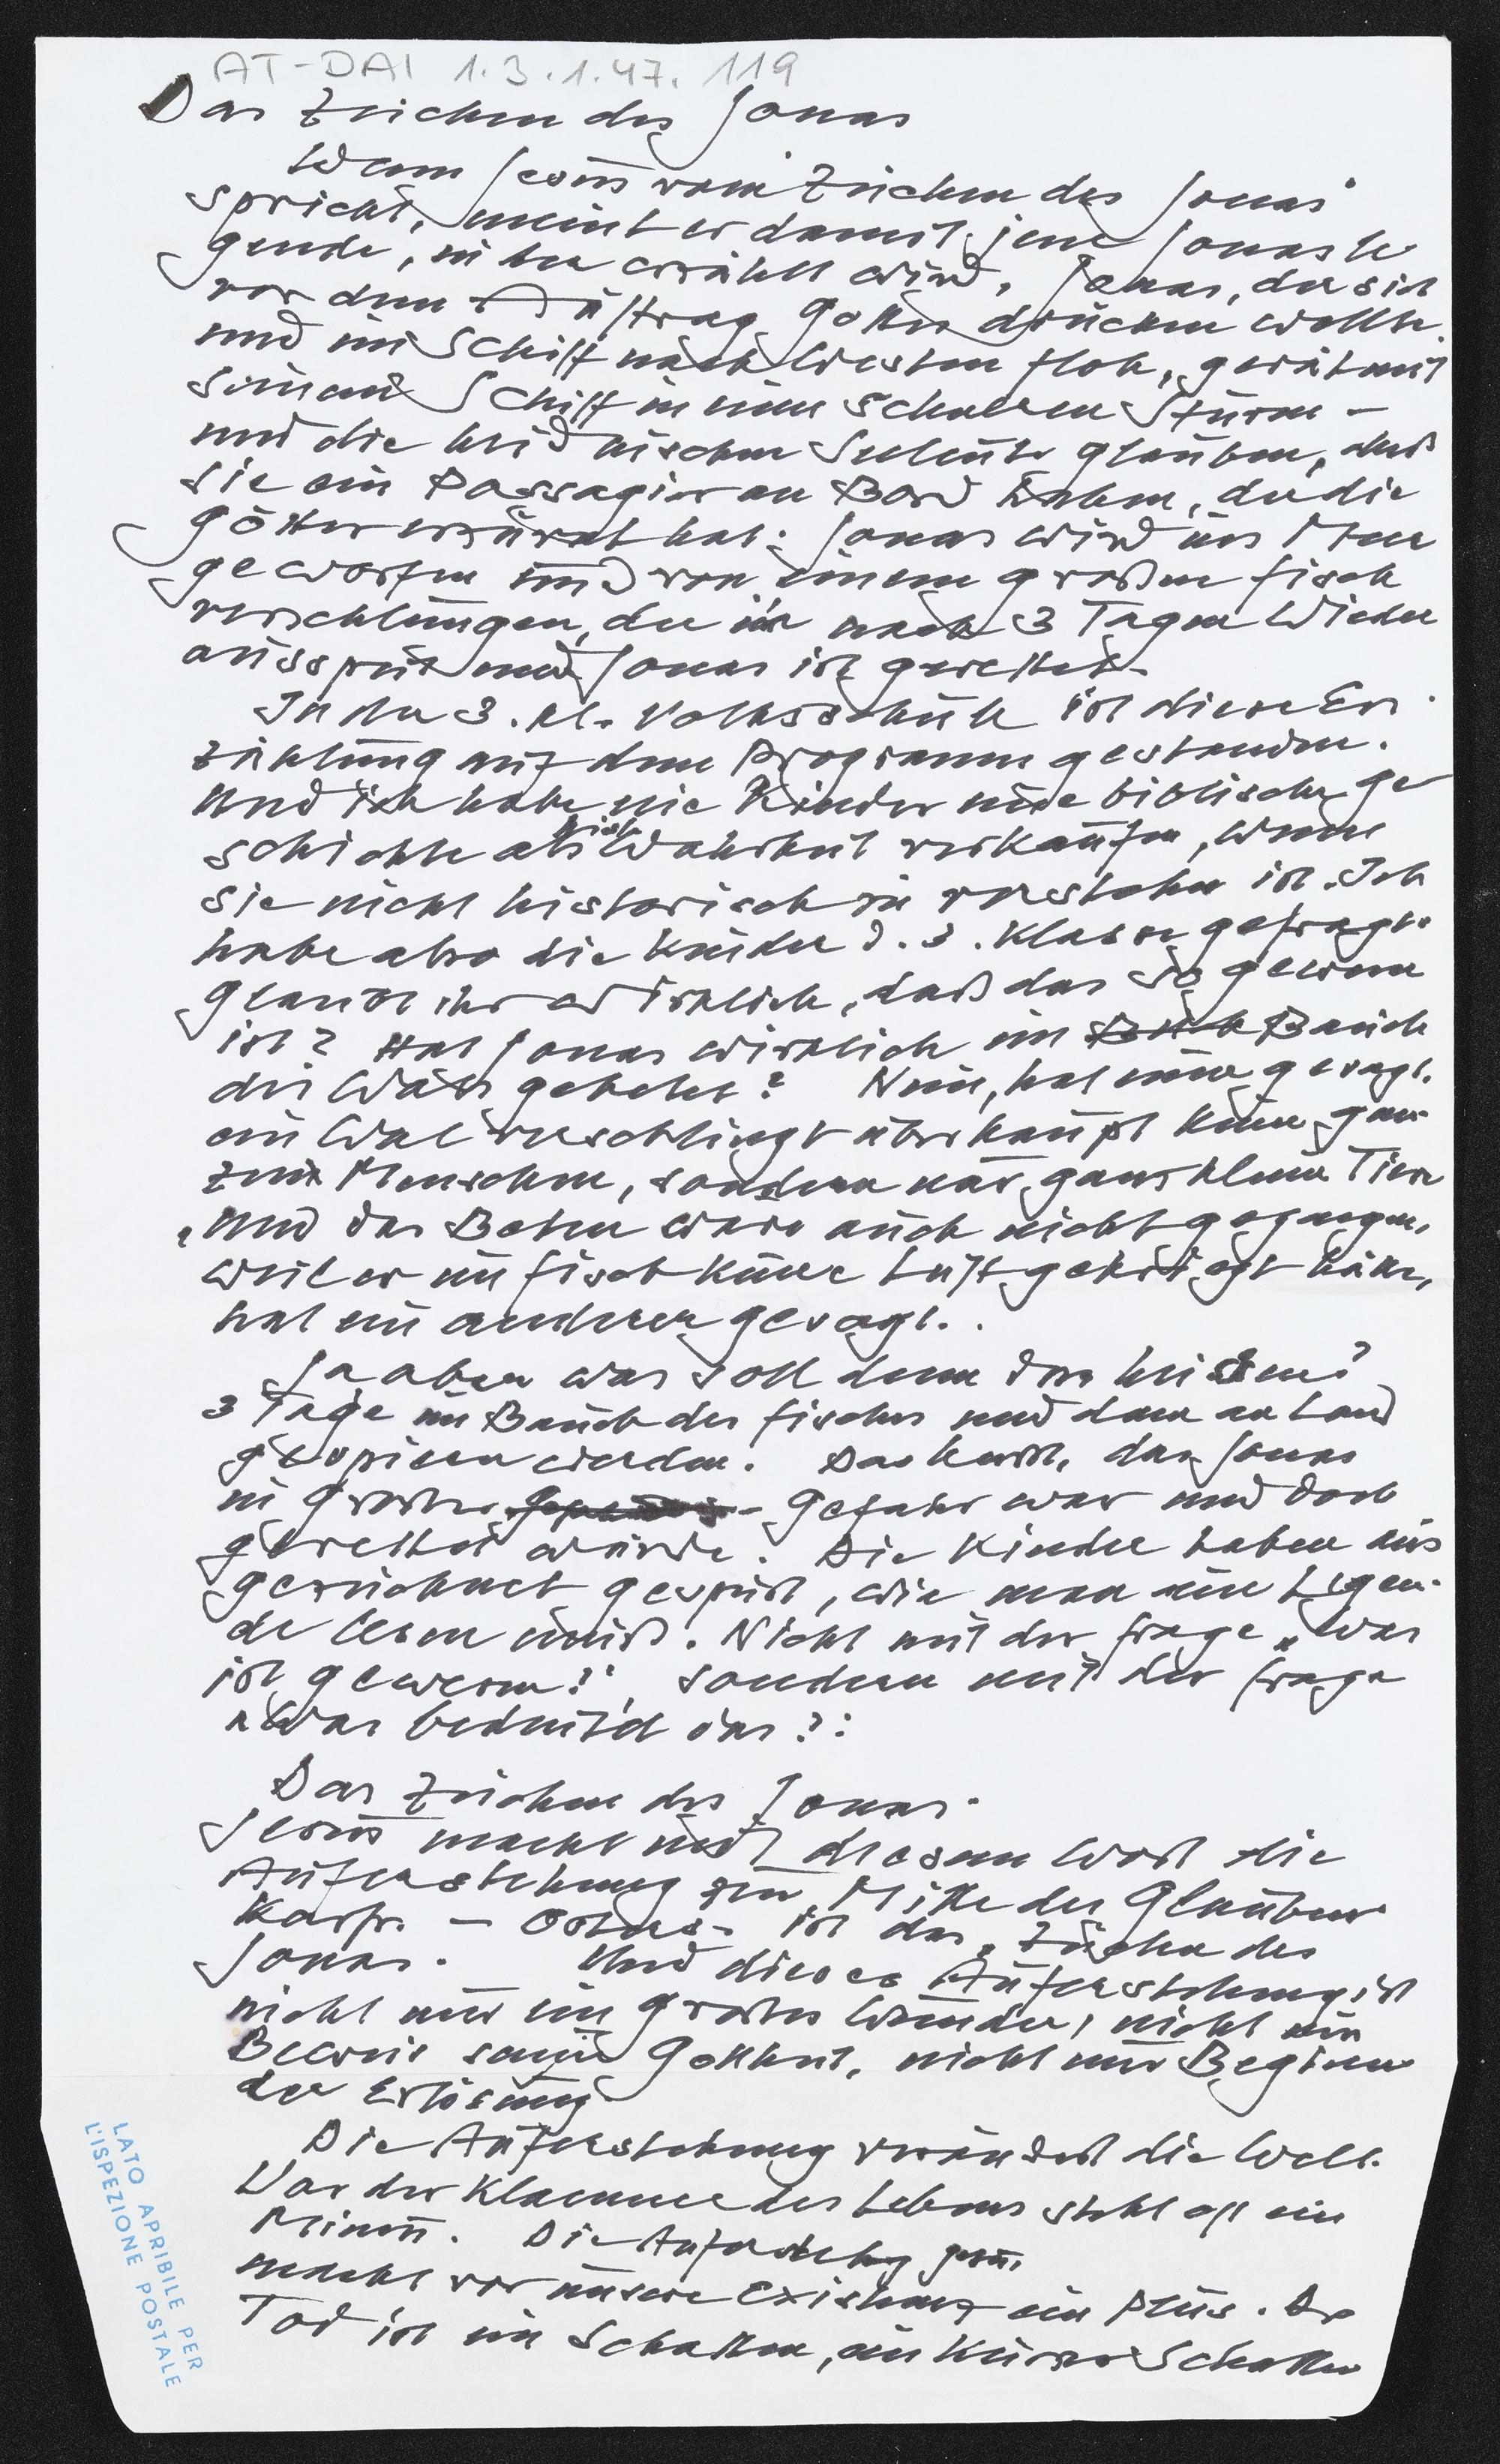 AT-DAI 1.3.1.47.119
Das Zeichen des Jonas
Wenn Jesus vom Zeichen des Jonas
spricht, meint er damit jene Jonasle
gende, in der erzählt wird, Jonas, der sich
vor dem Auftrag Gottes drücken wollte
und im Schiff nach Westen floh, gerät mit
seinem Schiff in einen schweren Sturm –
und die heidnischen Seeleute glauben, daß
sie ein Passagier an Bord haben, der die
Götter erzürnt hat: Jonas wird ins Meer
geworfen und von einem großen Fisch
verschlungen, der ihn nach 3 Tagen wieder
ausspeit und Jonas ist gerettet.
In der 3. Kl. Volksschule ist diese Er
zählung auf dem Programm gestanden.
Und ich habe nie Kinder eine biblische Ge
schichte als hist. Wahrheit verkaufen, wenn
sie nicht historisch zu verstehen ist. Ich
habe also die Kinder d. 3. Klasse gefragt:
Glaubt ihr wirklich, daß das so gewesen
ist? Hat Jonas wirklich im Bauch
des Wals gebetet? Nein, hat einer gesagt.
ein Wal verschlingt überhaupt keine gan
zen Menschen, sondern nur ganz kleine Tiere
„Und das Beten wäre auch nicht gegangen,
weil er im Fisch keine Luft gekriegt hätte,
hat ein anderer gesagt.
Ja aber was soll denn das heissen?
3 Tage im Bauch des Fisches und dann an Land
gespieen werden. Das heißt, das Jonas
in großer Gefahr war und doch
gerettet wurde. Die Kinder haben aus
gezeichnet gespürt, wie man eine Legen
de lesen muß. Nicht mit der Frage „Was
ist gewesen?", sondern mit der Frage
„Was bedeutet das?:
Das Zeichen des Jonas.
Jesus macht mit diesem Wort die
Auferstehung zur Mitte des Glaubens
Karfr. – Ostns – ist das „Zeichen des
Jonas. Und diese Auferstehung ist
nicht nur ein großes Wunder, nicht ein
Beweis seiner Gottheit, nicht nur Beginn
der Erlösung
Die Auferstehung verändert die Welt.
Vor der Klammer des Lebens steht oft ein
Minus. Die Auferstehung Jesu,
macht vor unsere Existenz ein Plus. Der
Tod ist ein Schatten, ein kurzer Schatten
LATO APRIBILE PER
L'ISPEZIONE POSTALE